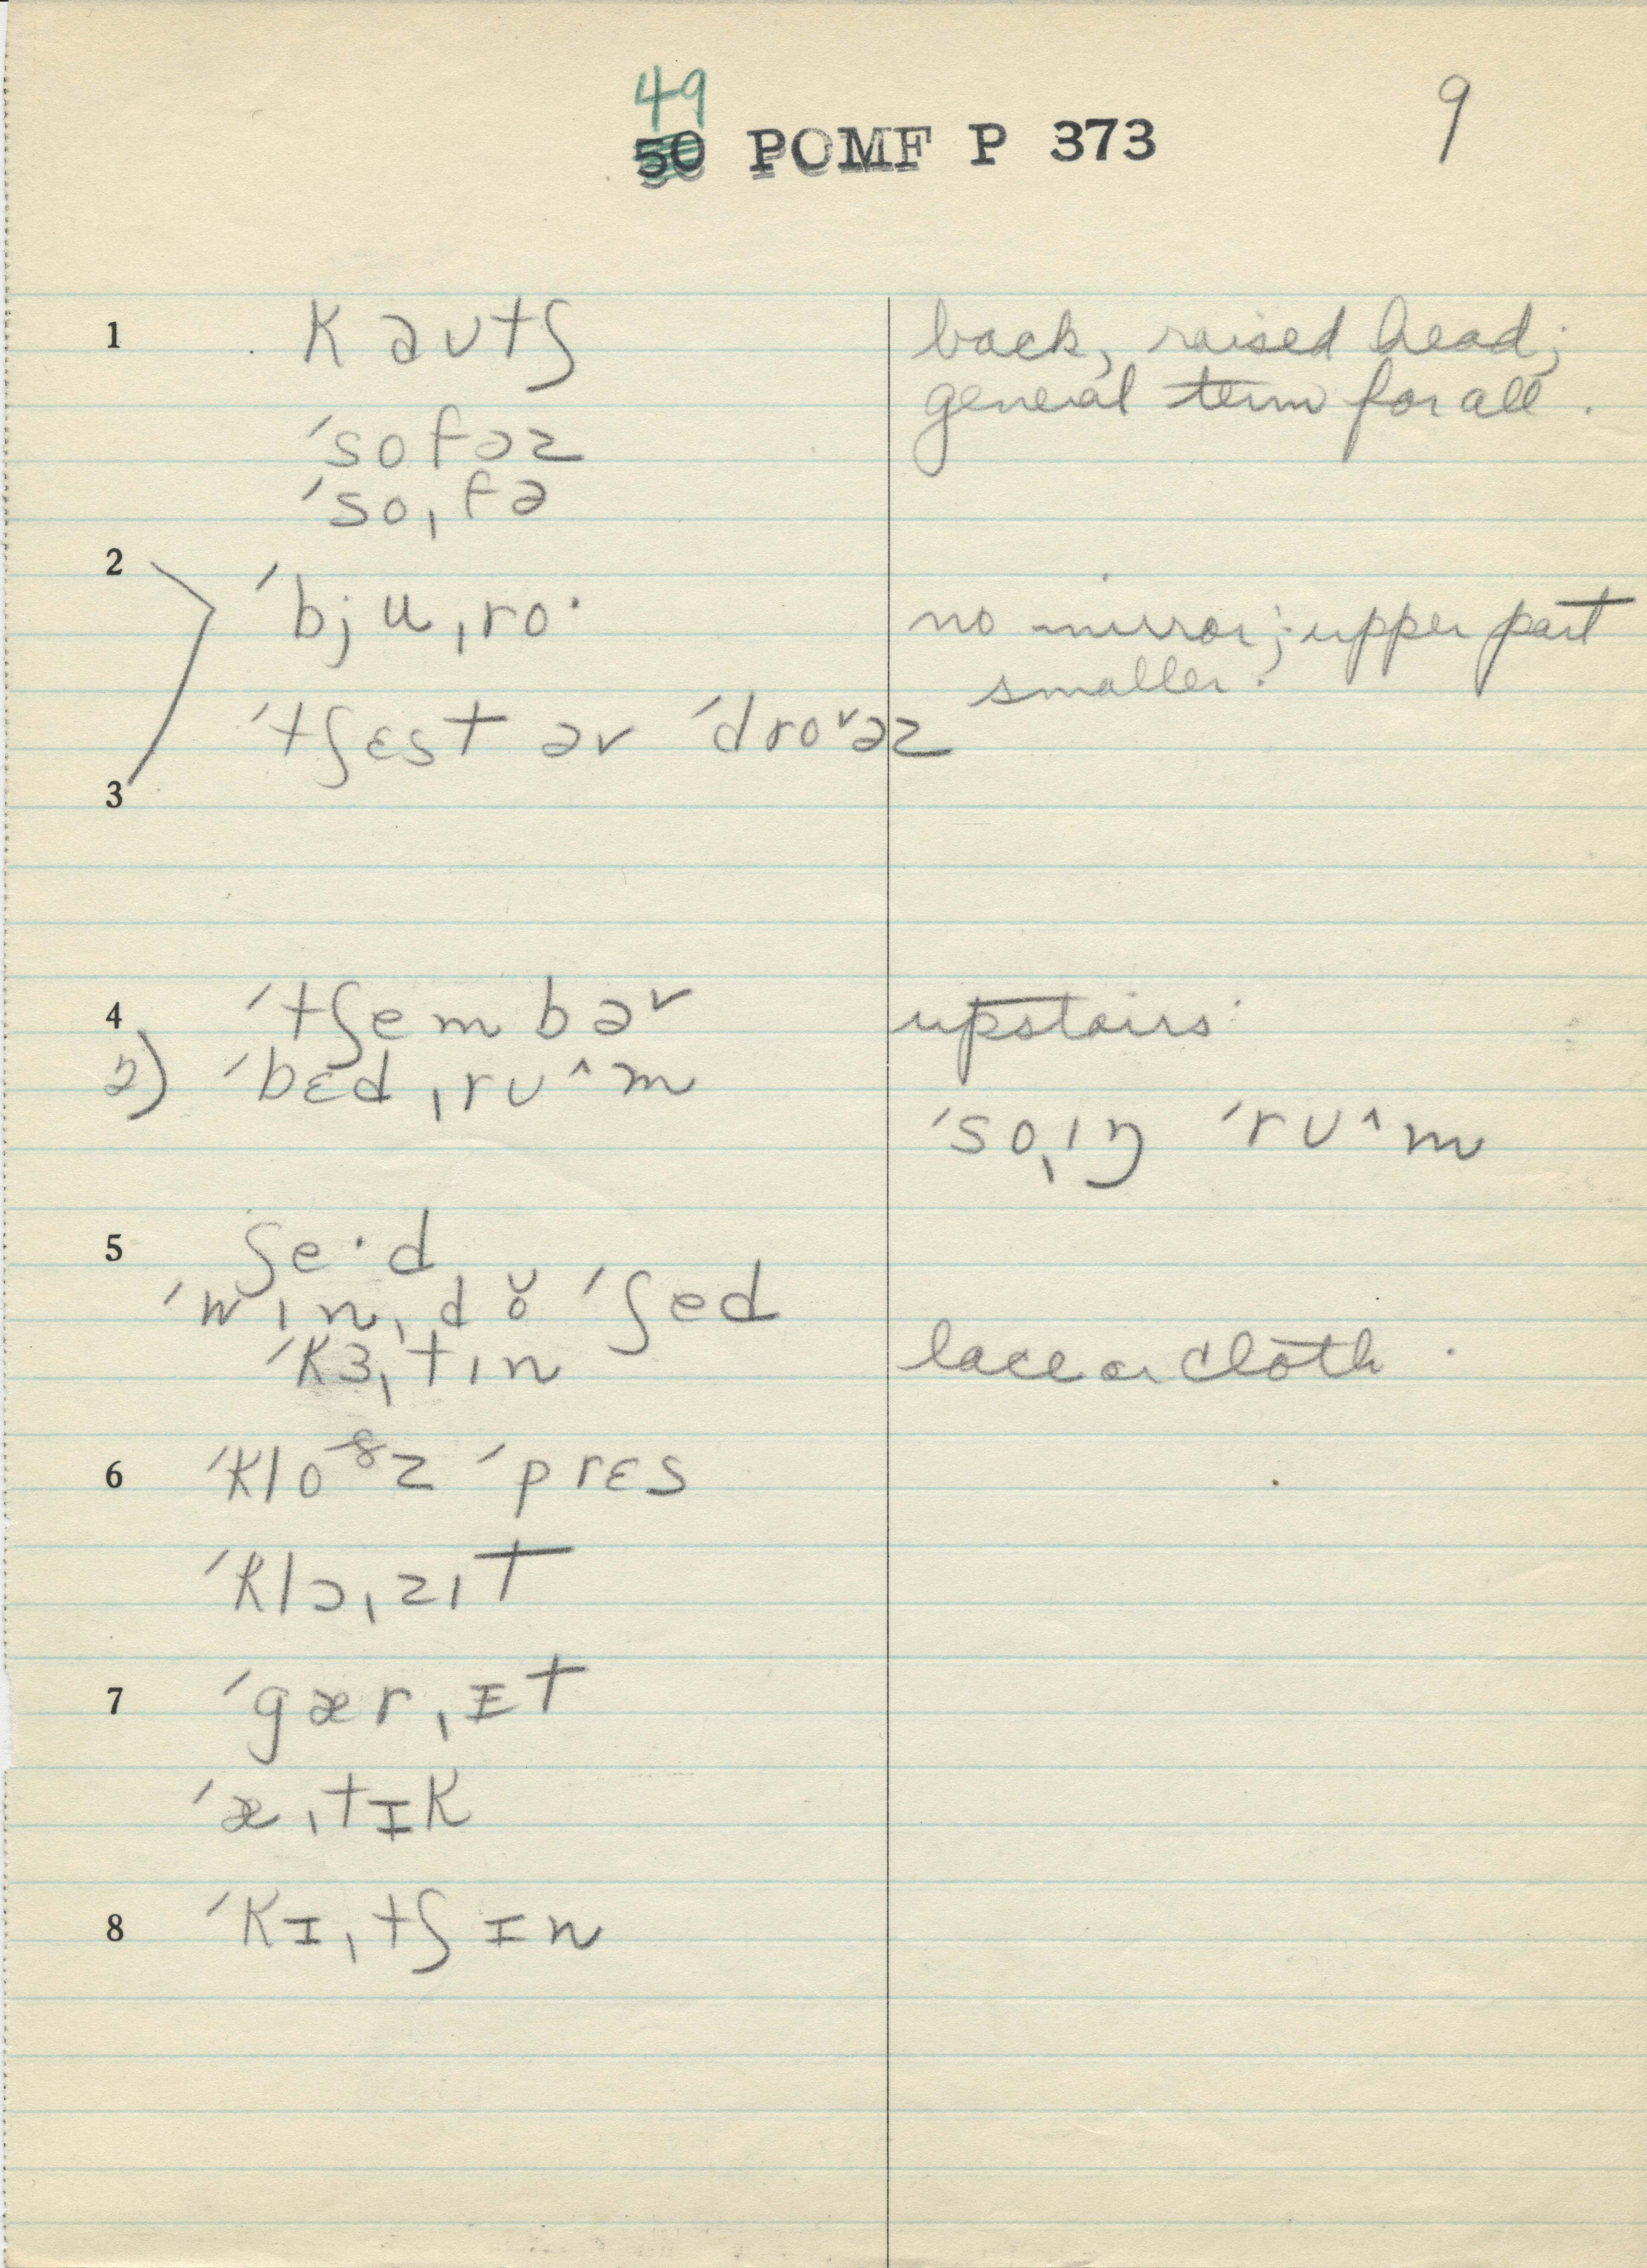 49
50 POMF P 373 9
1 kəʊtʃ back, raised head;
general term for all.
ˈsofəz
ˈsoˌfə
2 ˈbjuˌro· no mirror; upper part
smaller.
ˈtʃɛst əv ˈdroᵛəz
3
4 ˈtʃembəᵛ upstairs
2) ˈbɛdˌrʊ^m
ˈsoˌıŋ ˈrʊ^m
5 ʃe·d
ˈwınˌdŏ ˈʃed
ˈkɜˌtın lace or cloth.
6 ˈkloᶿz ˈprɛs
ˈklɔˌzıt
7 ˈgærˌɪt
ˈæˌtɪk
8 ˈkɪˌtʃɪn